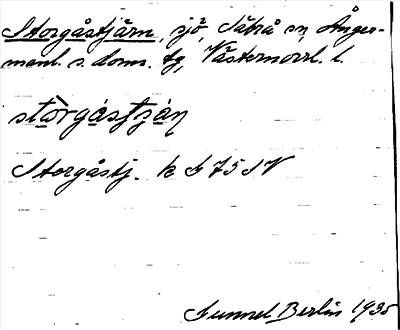 Storgåstjärn, sjö, Sätrå sn, Ånger-
manl. s. doms. tg, Västernorrl. l.
stòrgástján
Storgåstj. k G 75 SV
Gunnel Berlin 1935